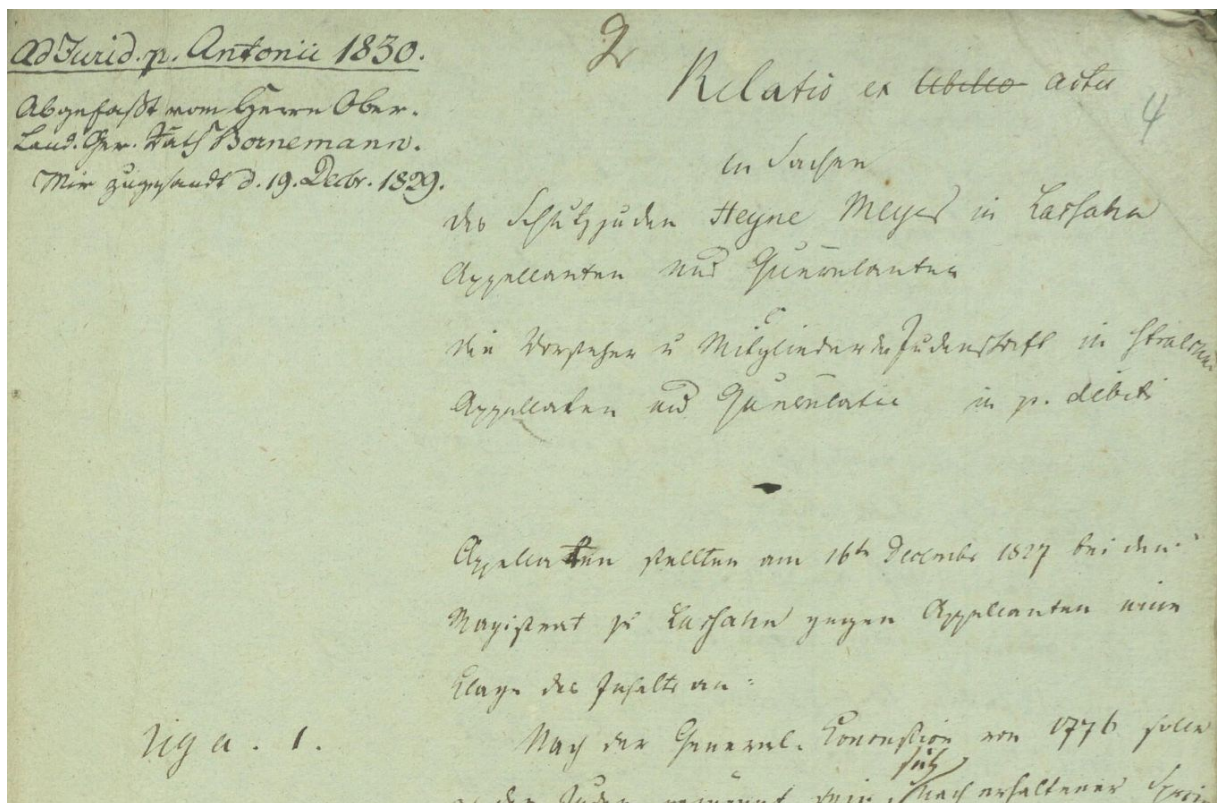 Ad Jurid. p. Antonii 1830.
Abgefaßt vom Herrn Ober-
Land. Ger. Rath Bornemann.
Mir zugesandt d. 19. Decbr. 1829.
2
4
Relatio ex actis
in Sachen
des Schutzjuden Heyne Meyer in Lassahn
Appellanten und Querulanten
die Vorsteher u Mitglieder der Judenschaft in Stralsund
Appellaten und Querulatei in p. debiti
Appellaten stellten am 16t Decembr 1827 bei dem
Magistrat zu Lassahn gegen Appellanten eine
Klage des Inhalts an:
1.
Nach der General. Concession von 1776 solle
sich
der Juden nach erhaltener